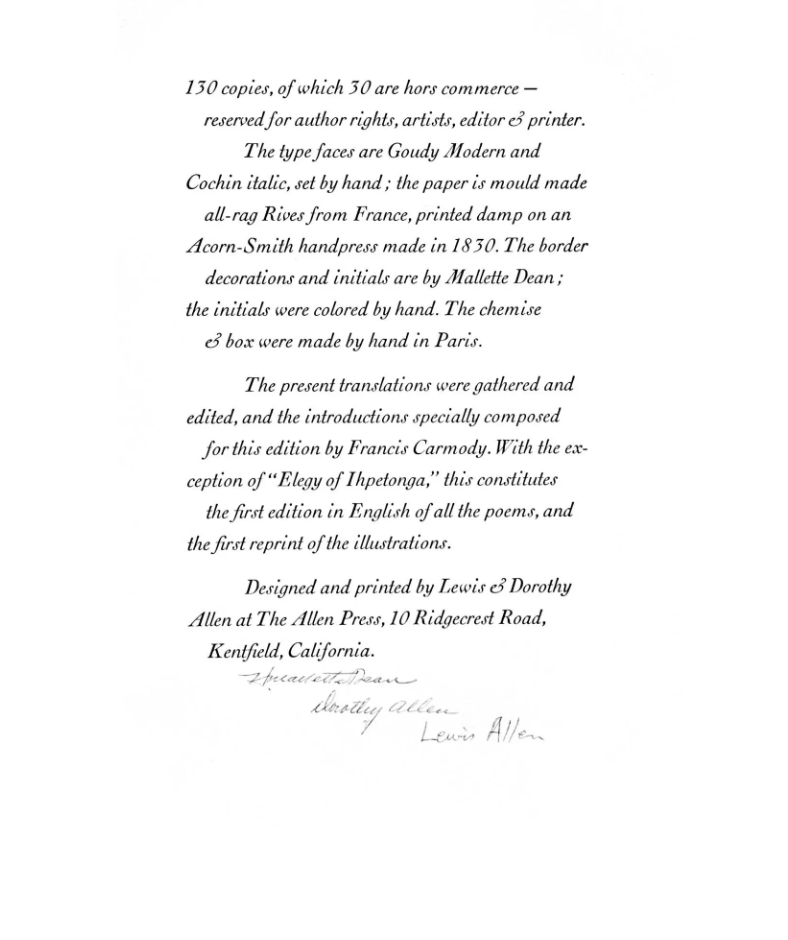 130 copies, of which 30 are hors commerce —
reserved for author rights, artists, editor & printer.
The type faces are Goudy Modern and
Cochin italic, set by hand; the paper is mould made
all-rag Rives from France, printed damp on an
Acorn-Smith handpress made in 1830. The border
decorations and initials are by Mallette Dean;
the initials were colored by hand. The chemise
& box were made by hand in Paris.
The present translations were gathered and
edited, and the introductions specially composed
for this edition by Francis Carmody. With the ex-
ception of “Elegy of Ihpetonga,” this constitutes
the first edition in English of all the poems, and
the first reprint of the illustrations.
Designed and printed by Lewis & Dorothy
Allen at The Allen Press, 10 Ridgecrest Road,
Kentfield, California.
Mallette Dean
Dorothy Allen
Lewis Allen